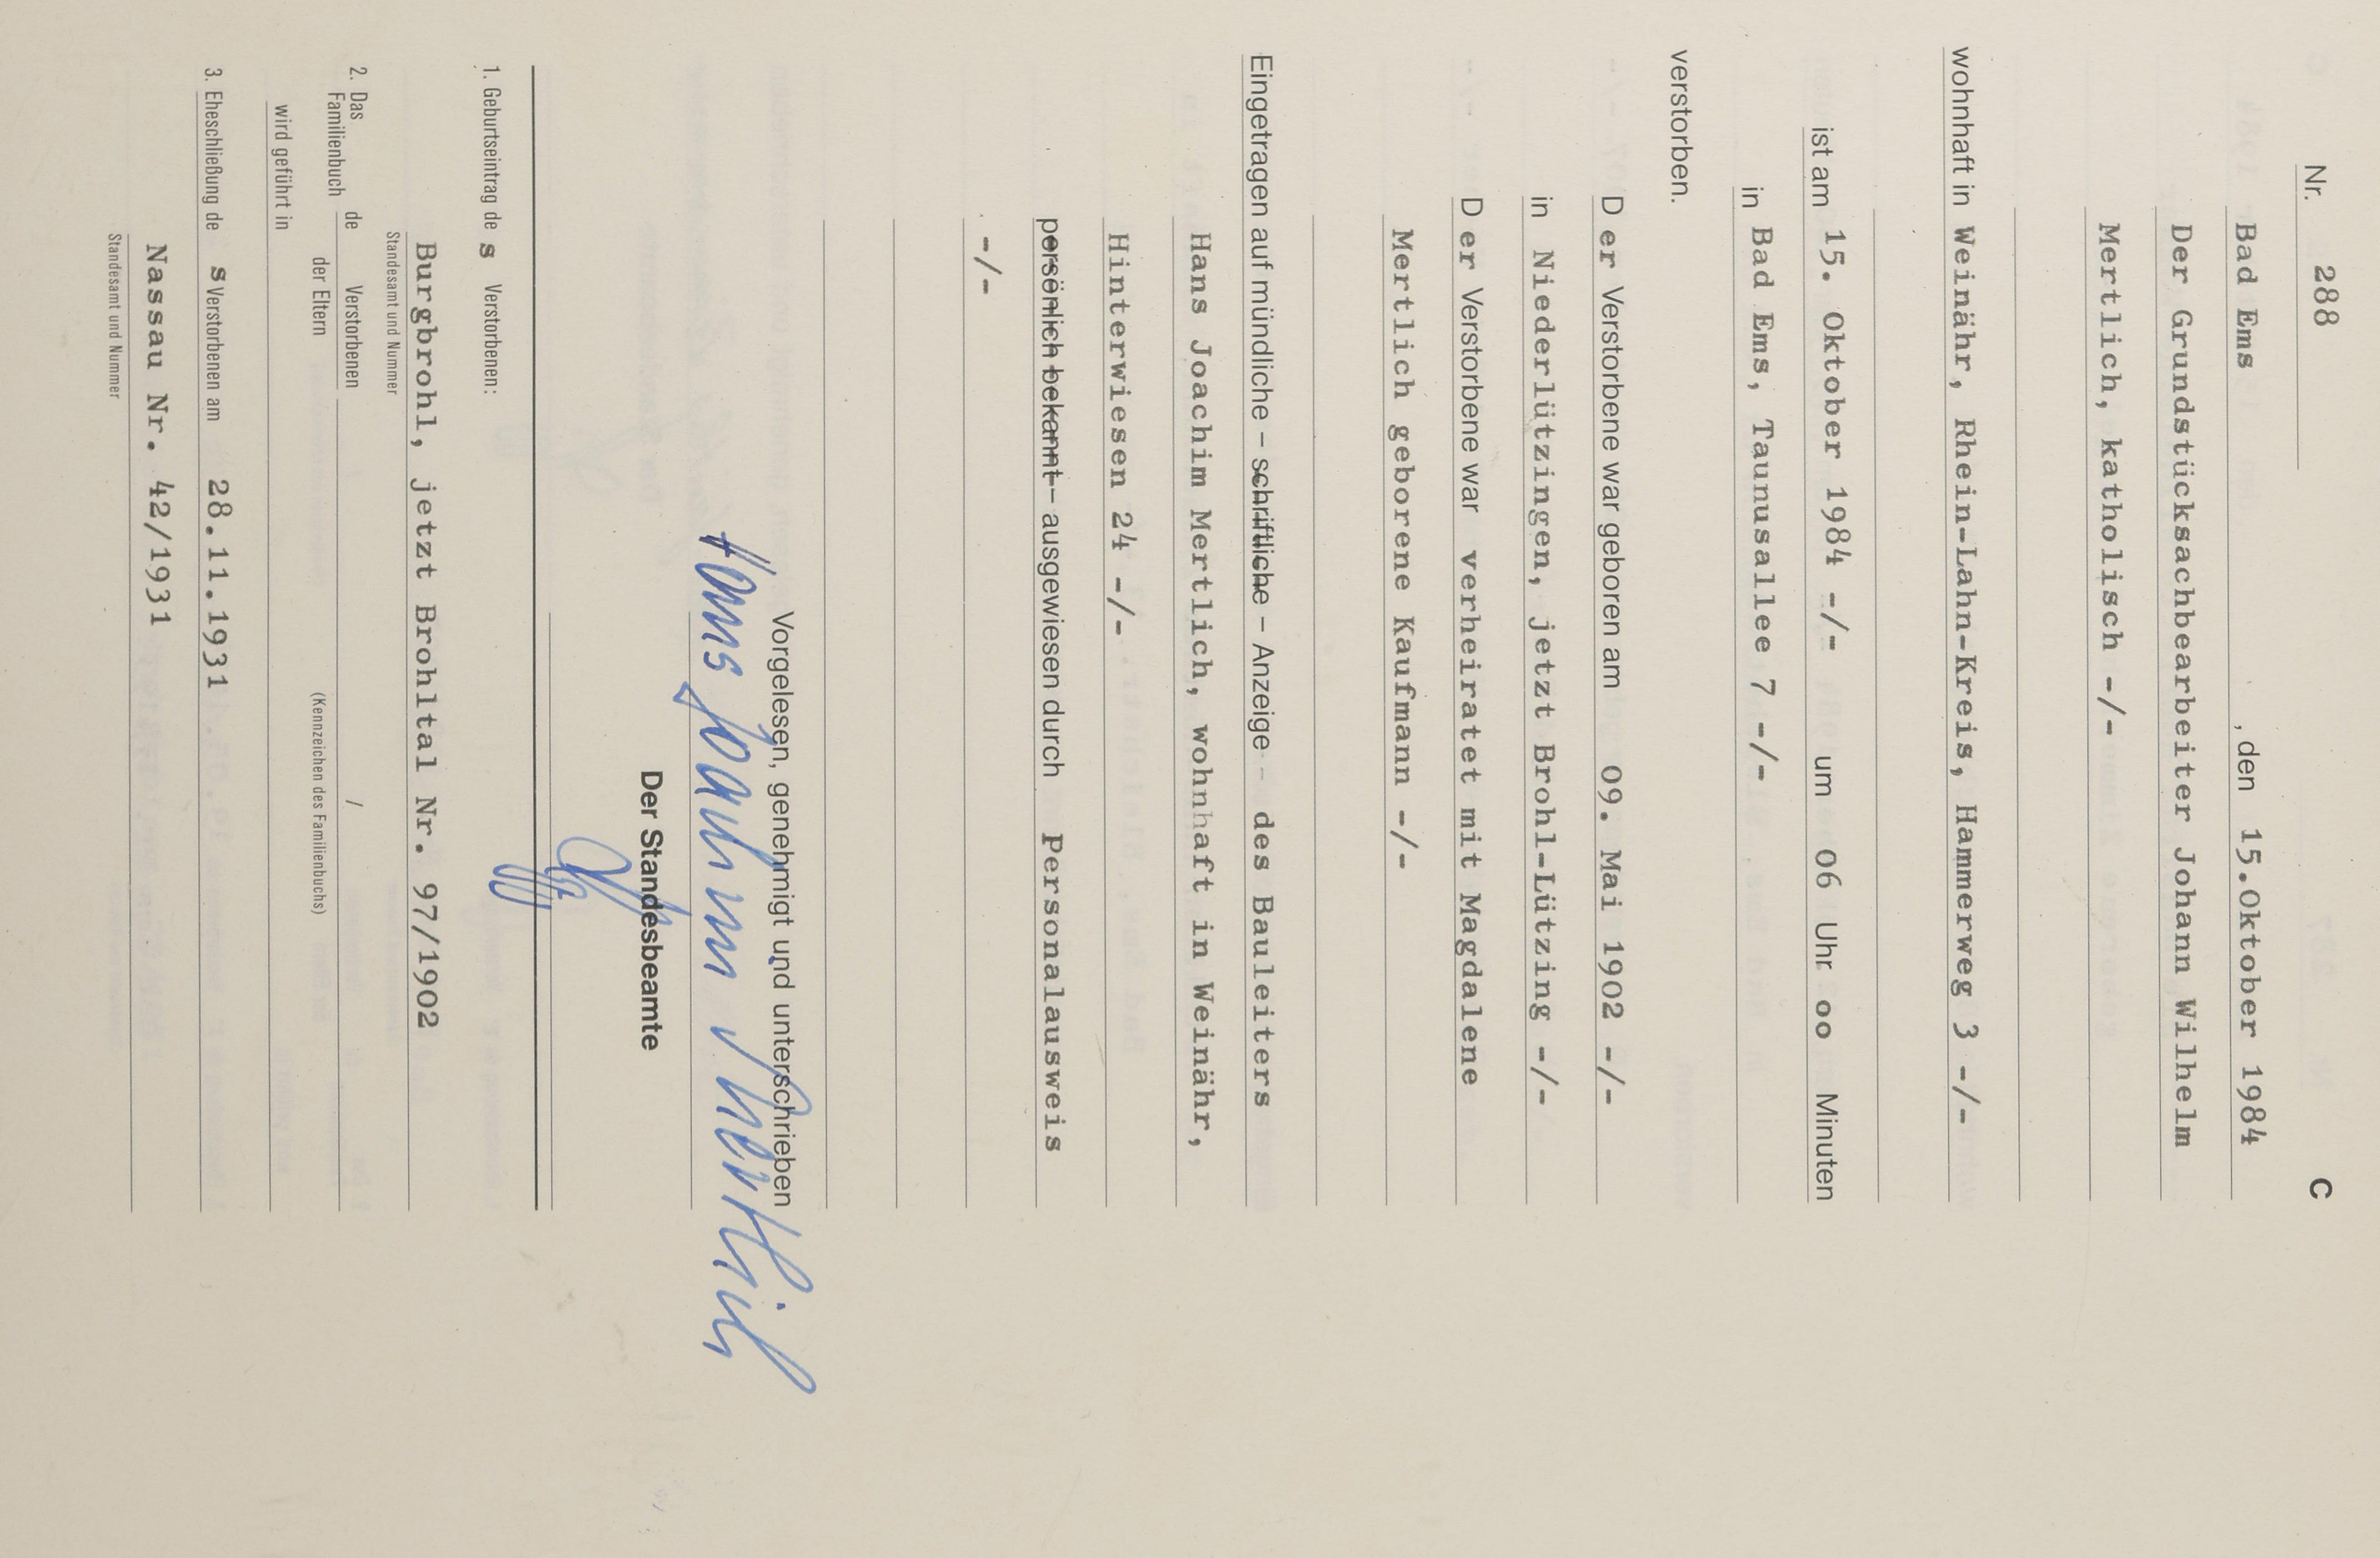 C
Nr. 288
Bad Ems, den 15.Oktober 1984
Der Grundstücksachbearbeiter Johann Wilhelm
Mertlich, katholisch -/-
wohnhaft in Weinähr, Rhein-Lahn-Kreis, Hammerweg 3 -/-
ist am 15. Oktober 1984 -/- um 06 Uhr oo Minuten
in Bad Ems, Taunusallee 7 -/-
verstorben.
Der Verstorbene war geboren am 09. Mai 1902 -/-
in Niederlützingen, jetzt Brohl-Lützing -/-
Der Verstorbene war verheiratet mit Magdalene
Mertlich geborene Kaufmann -/-
Eingetragen auf mündliche – schriftliche – Anzeige – des Bauleiters
Hans Joachim Mertlich, wohnhaft in Weinähr,
Hinterwiesen 24 -/-
persönlich bekannt – ausgewiesen durch Personalausweis
-/-
Vorgelesen, genehmigt und unterschrieben
Hans Joachim Mertlich
Der Standesbeamte
1. Geburtseintrag des Verstorbenen:
Burgbrohl, jetzt Brohltal Nr. 97/1902
Standesamt und Nummer
2. Das Familienbuch de Verstorbenen /
der Eltern (Kennzeichen des Familienbuchs)
wird geführt in
3. Eheschließung des Verstorbenen am 28.11.1931
Nassau Nr. 42/1931
Standesamt und Nummer